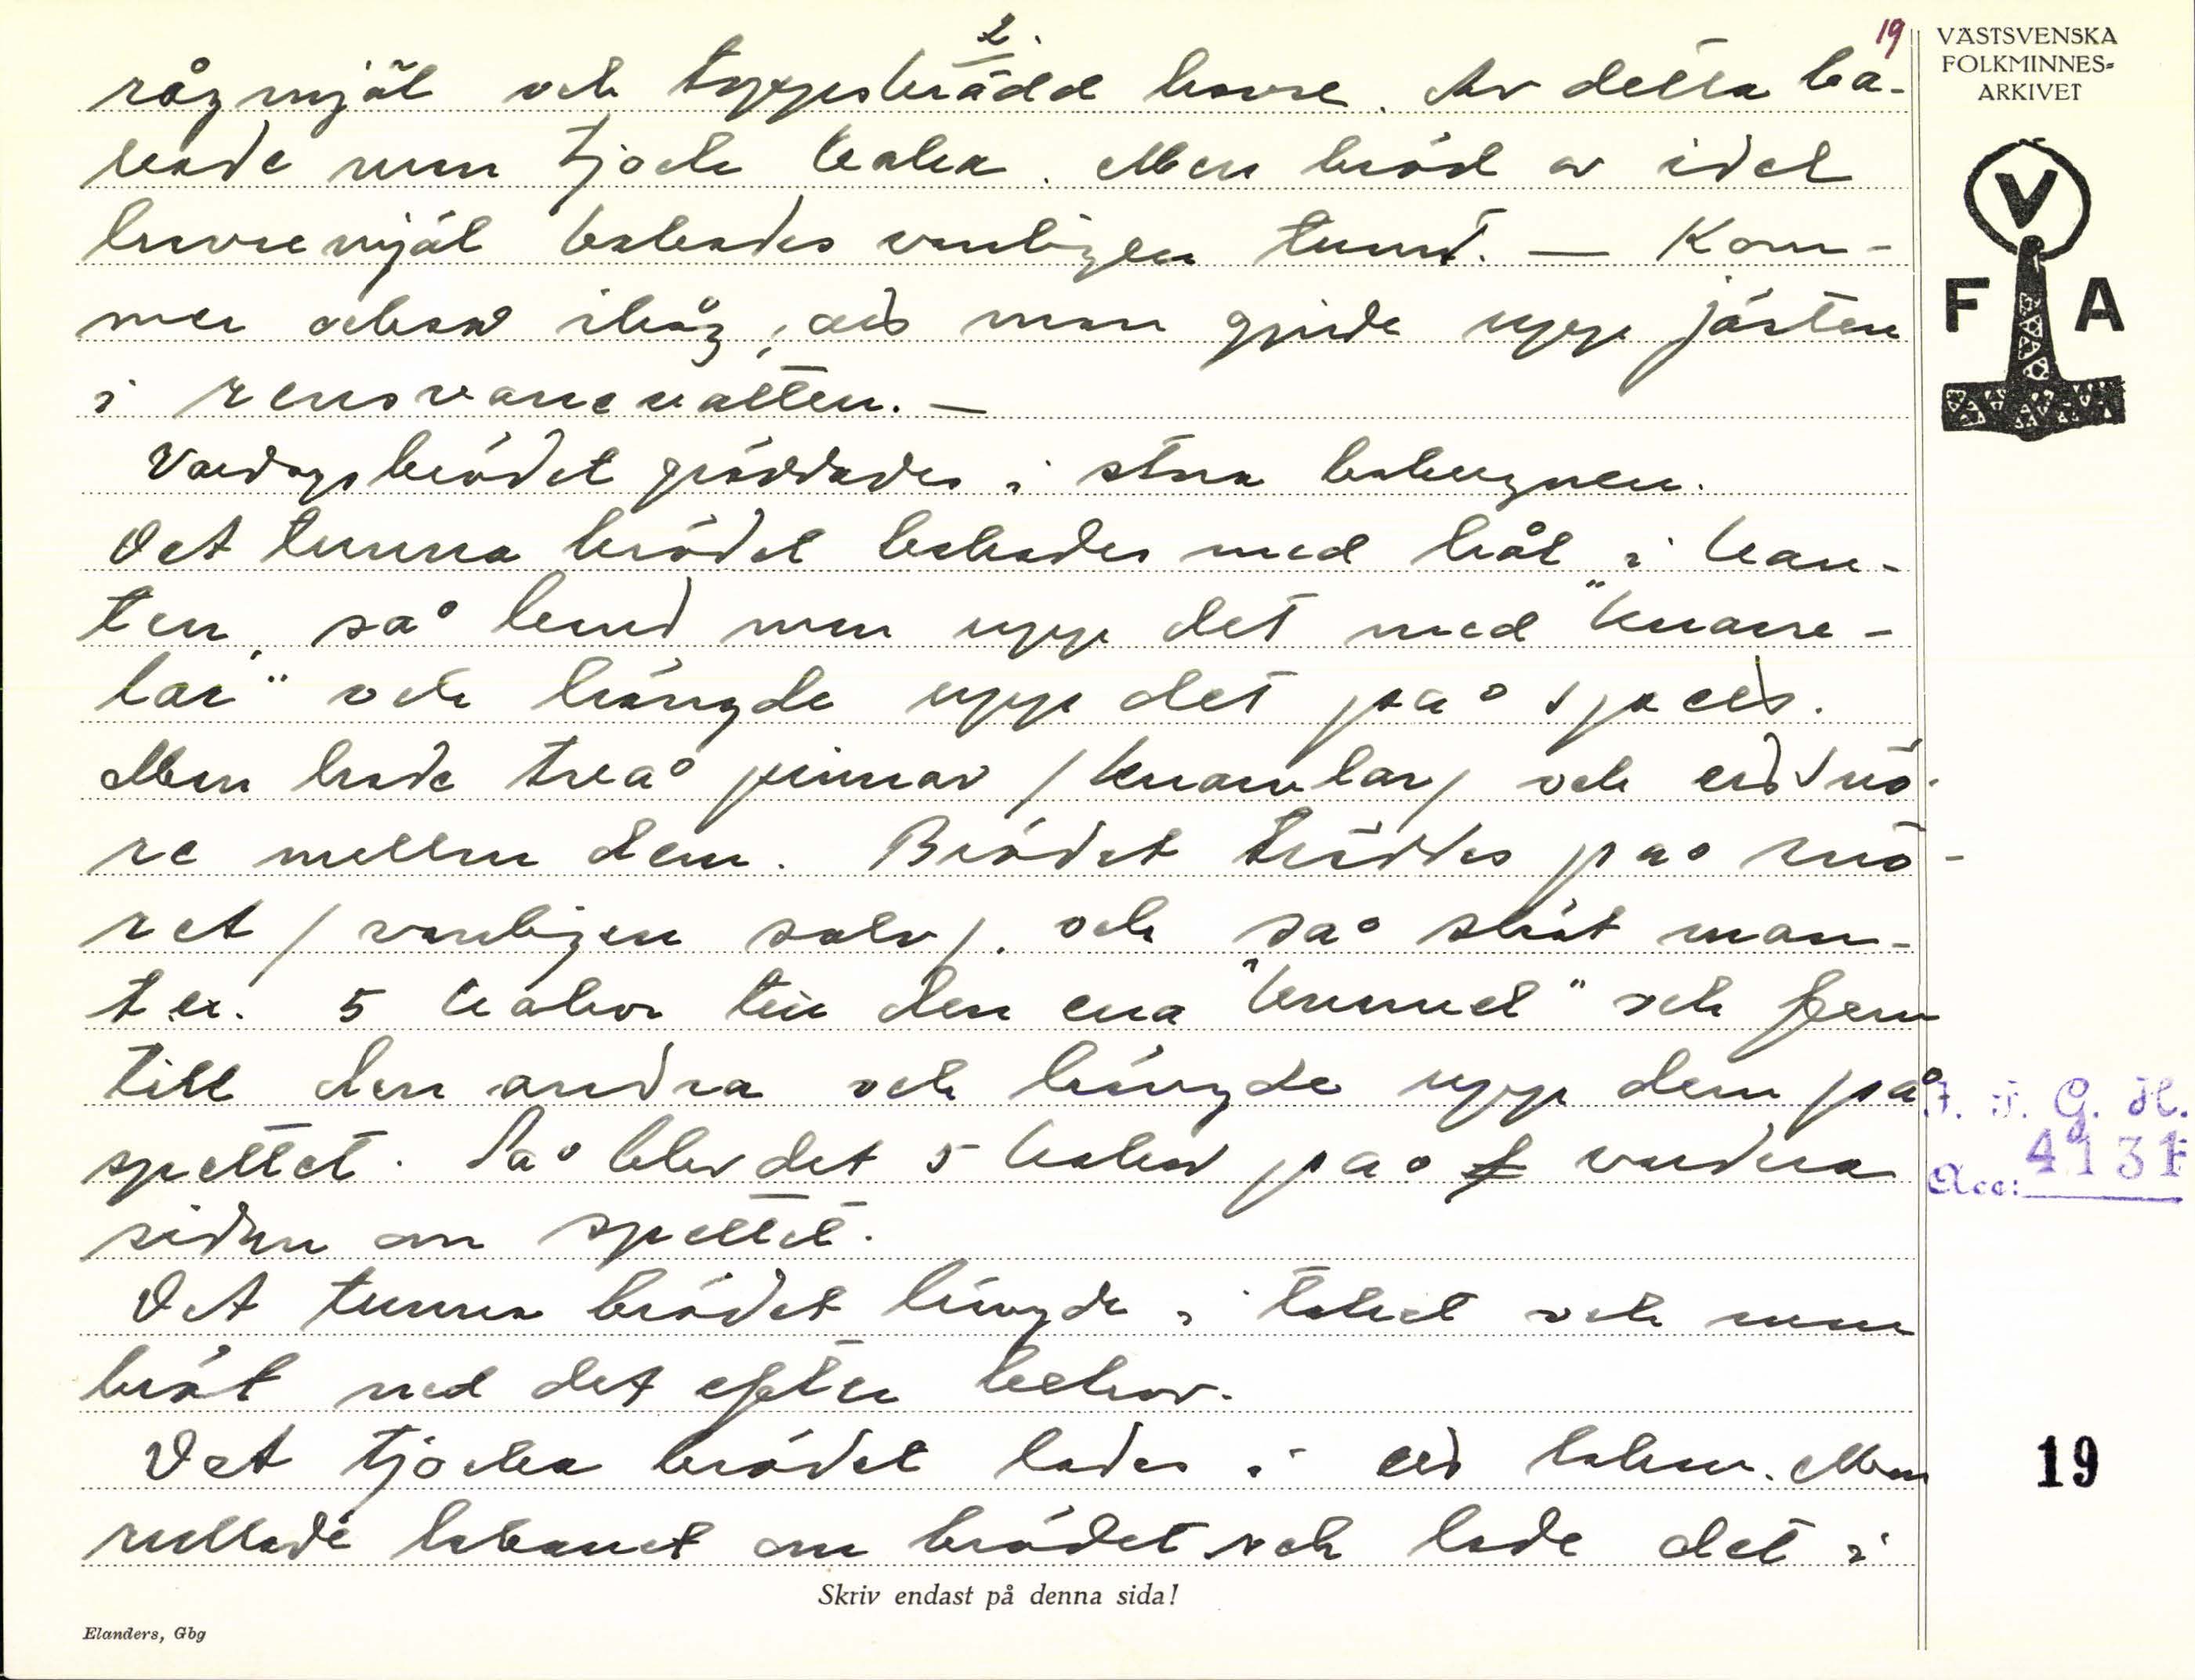 2.
19
rågmjöl och toppskrädd havre. Av detta ba-
kade man tjock kaka. Men bröd av idel
havremjöl bakades vanligen tunt. — Kom-
mer också ihåg, att man gjorde upp jästen
i
Vardagsbrödet gräddades i stora bakugnen.
Det tunna brödet bakades med hål i kan-
ten, så band man upp det med "knave-
lar" och hängde upp det på spett.
Man hade två pinnar /knavlar/ och ett snö-
re mellan dem. Brödet träddes på snö-
ret /vanligen halv/. och så sköt man
t.ex. 5 kakor till den ena "knavel" och fem
till den andra och hängde upp dem på
spettet. Så blev det 5 kakor på vardera
sidan om spettet.
Det tunna brödet hängde i taket och man
bröt ned det efter behov.
Det tjocka brödet lades i ett lakan. Man
rullade lakanet om brödet och lade det i
Skriv endast på denna sida!
Elanders, Gbg
VÄSTSVENSKA
FOLKMINNES=
ARKIVET
V
F A
I. F. G. H.
Acc: 4131
19